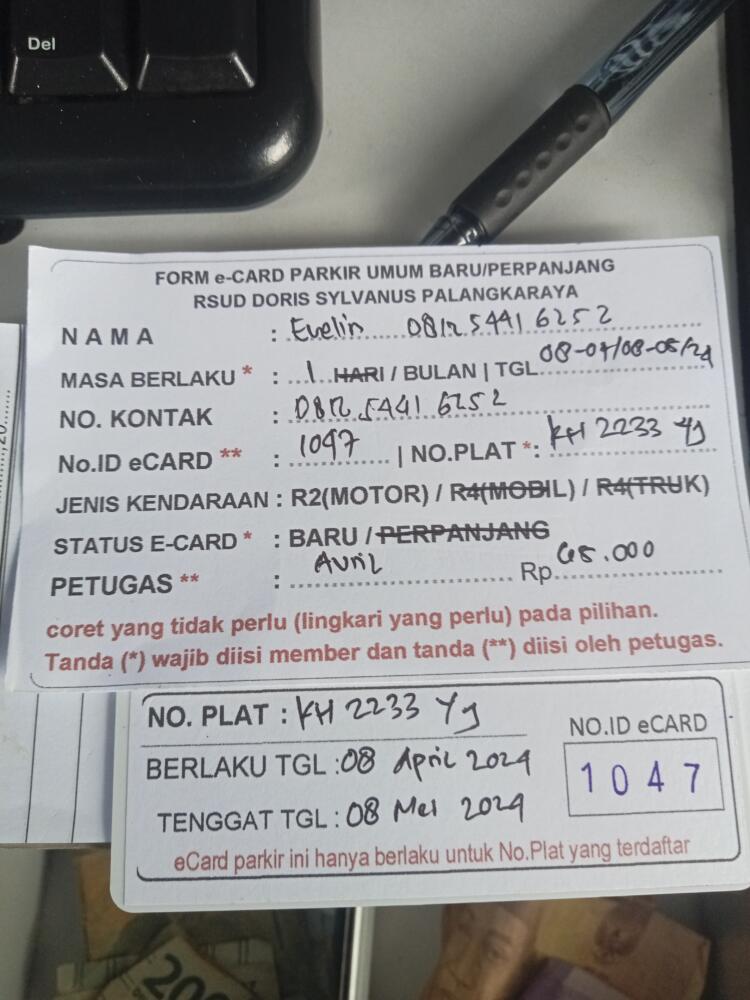 Del
FORM e-CARD PARKIR UMUM BARU/PERPANJANG
RSUD DORIS SYLVANUS PALANGKARAYA
NAMA : Evelin 0812 5441 6252
MASA BERLAKU * : 1 HARI / BULAN | TGL 08-04/08-05/24
NO. KONTAK : 0812 5441 6252
No.ID eCARD ** : 1047 | NO.PLAT *: KH 2233 Yg
JENIS KENDARAAN : R2(MOTOR) / R4(MOBIL) / R4(TRUK)
STATUS E-CARD * : BARU / PERPANJANG
PETUGAS ** : Avril Rp 65.000
coret yang tidak perlu (lingkari yang perlu) pada pilihan.
Tanda (*) wajib diisi member dan tanda (**) diisi oleh petugas.
NO. PLAT : KH 2233 Yg
NO.ID eCARD
BERLAKU TGL : 08 April 2024
1047
TENGGAT TGL : 08 Mei 2024
eCard parkir ini hanya berlaku untuk No.Plat yang terdaftar